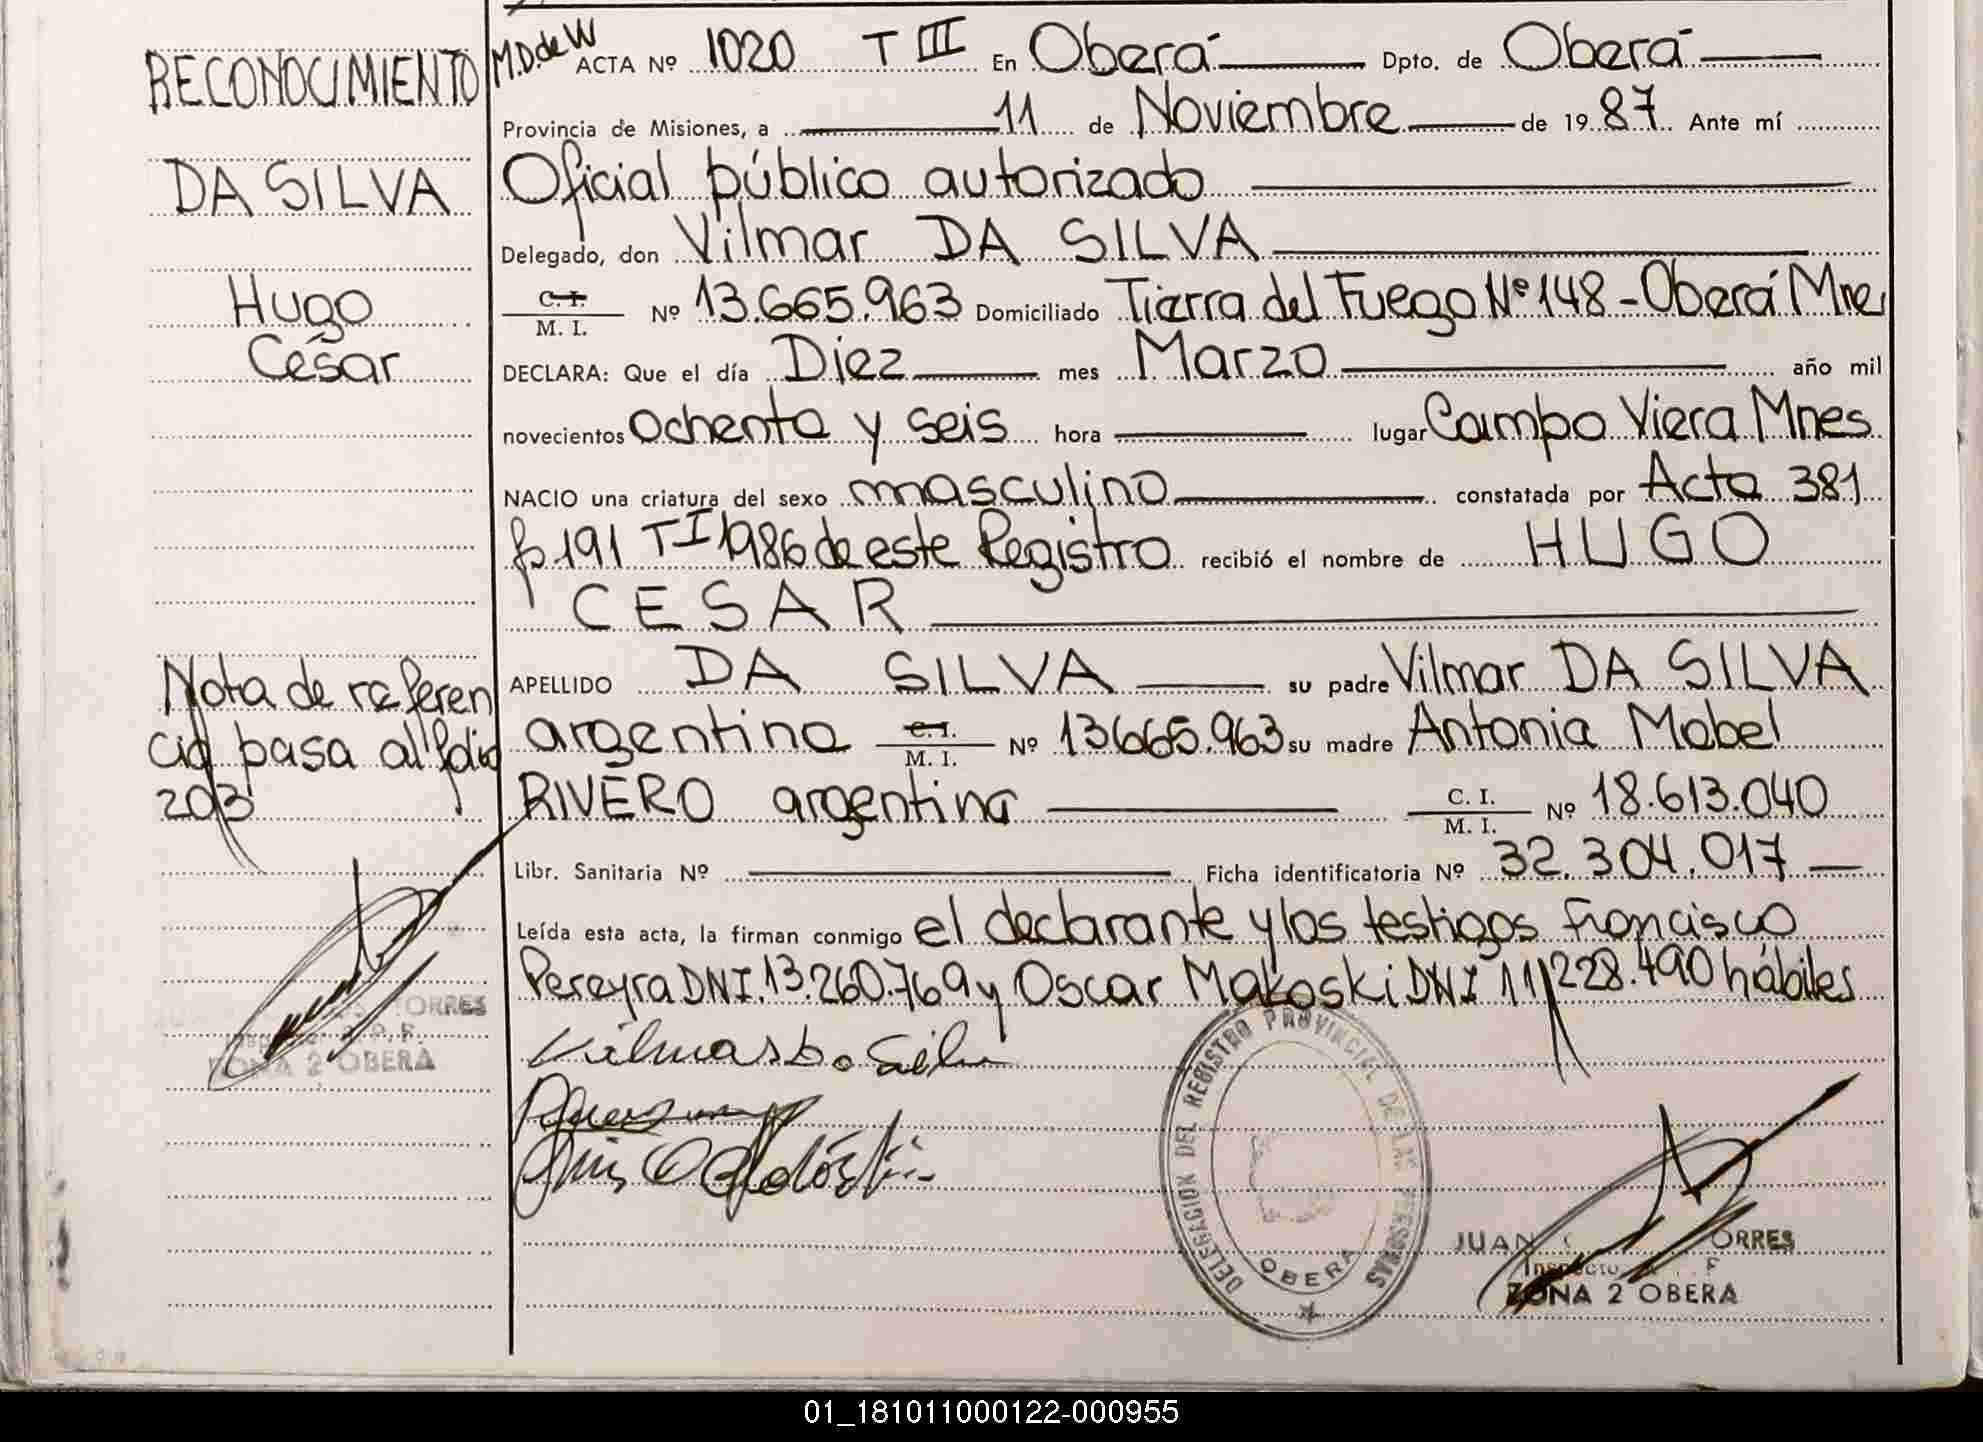 RECONOCIMIENTO
DA SILVA
Hugo
César
Nota de referen
cia pasa al folio
203
ORRES
ZONA 2 OBERA
M.D.de W ACTA Nº 1020 T III En Oberá Dpto. de Oberá
Provincia de Misiones, a 11 de Noviembre de 19 87 Ante mí
Oficial público autorizado
Delegado, don Vilmar DA SILVA
C.I. M. I. Nº 13.665.963 Domiciliado Tierra del Fuego Nº 148-Oberá Mnes
DECLARA: Que el día Diez mes Marzo año mil
novecientos ochenta y seis hora lugar Campo Viera Mnes
NACIO una criatura del sexo masculino constatada por Acta 381
fº 191 T I 1986 de este Registro recibió el nombre de HUGO
CESAR
APELLIDO DA SILVA su padre Vilmar DA SILVA
argentino C.I. M. I. Nº 13.665.963 su madre Antonia Mabel
RIVERO argentina C. I. M. I. Nº 18.613.040
Libr. Sanitaria Nº Ficha identificatoria Nº 32.304.017
Leída esta acta, la firman conmigo el declarante y los testigos Francisco
Pereyra DNI.13.260.769 y Oscar Makoski DNI 11.228.490 hábiles
Vilmar Da Silva
DELEGACION DEL REGISTRO PROVINCIAL DE LAS PERSONAS
OBERA
JUAN ORRES
ZONA 2 OBERA
01_181011000122-000955